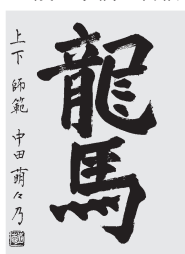 龍馬
上下 師範 中田萌々乃